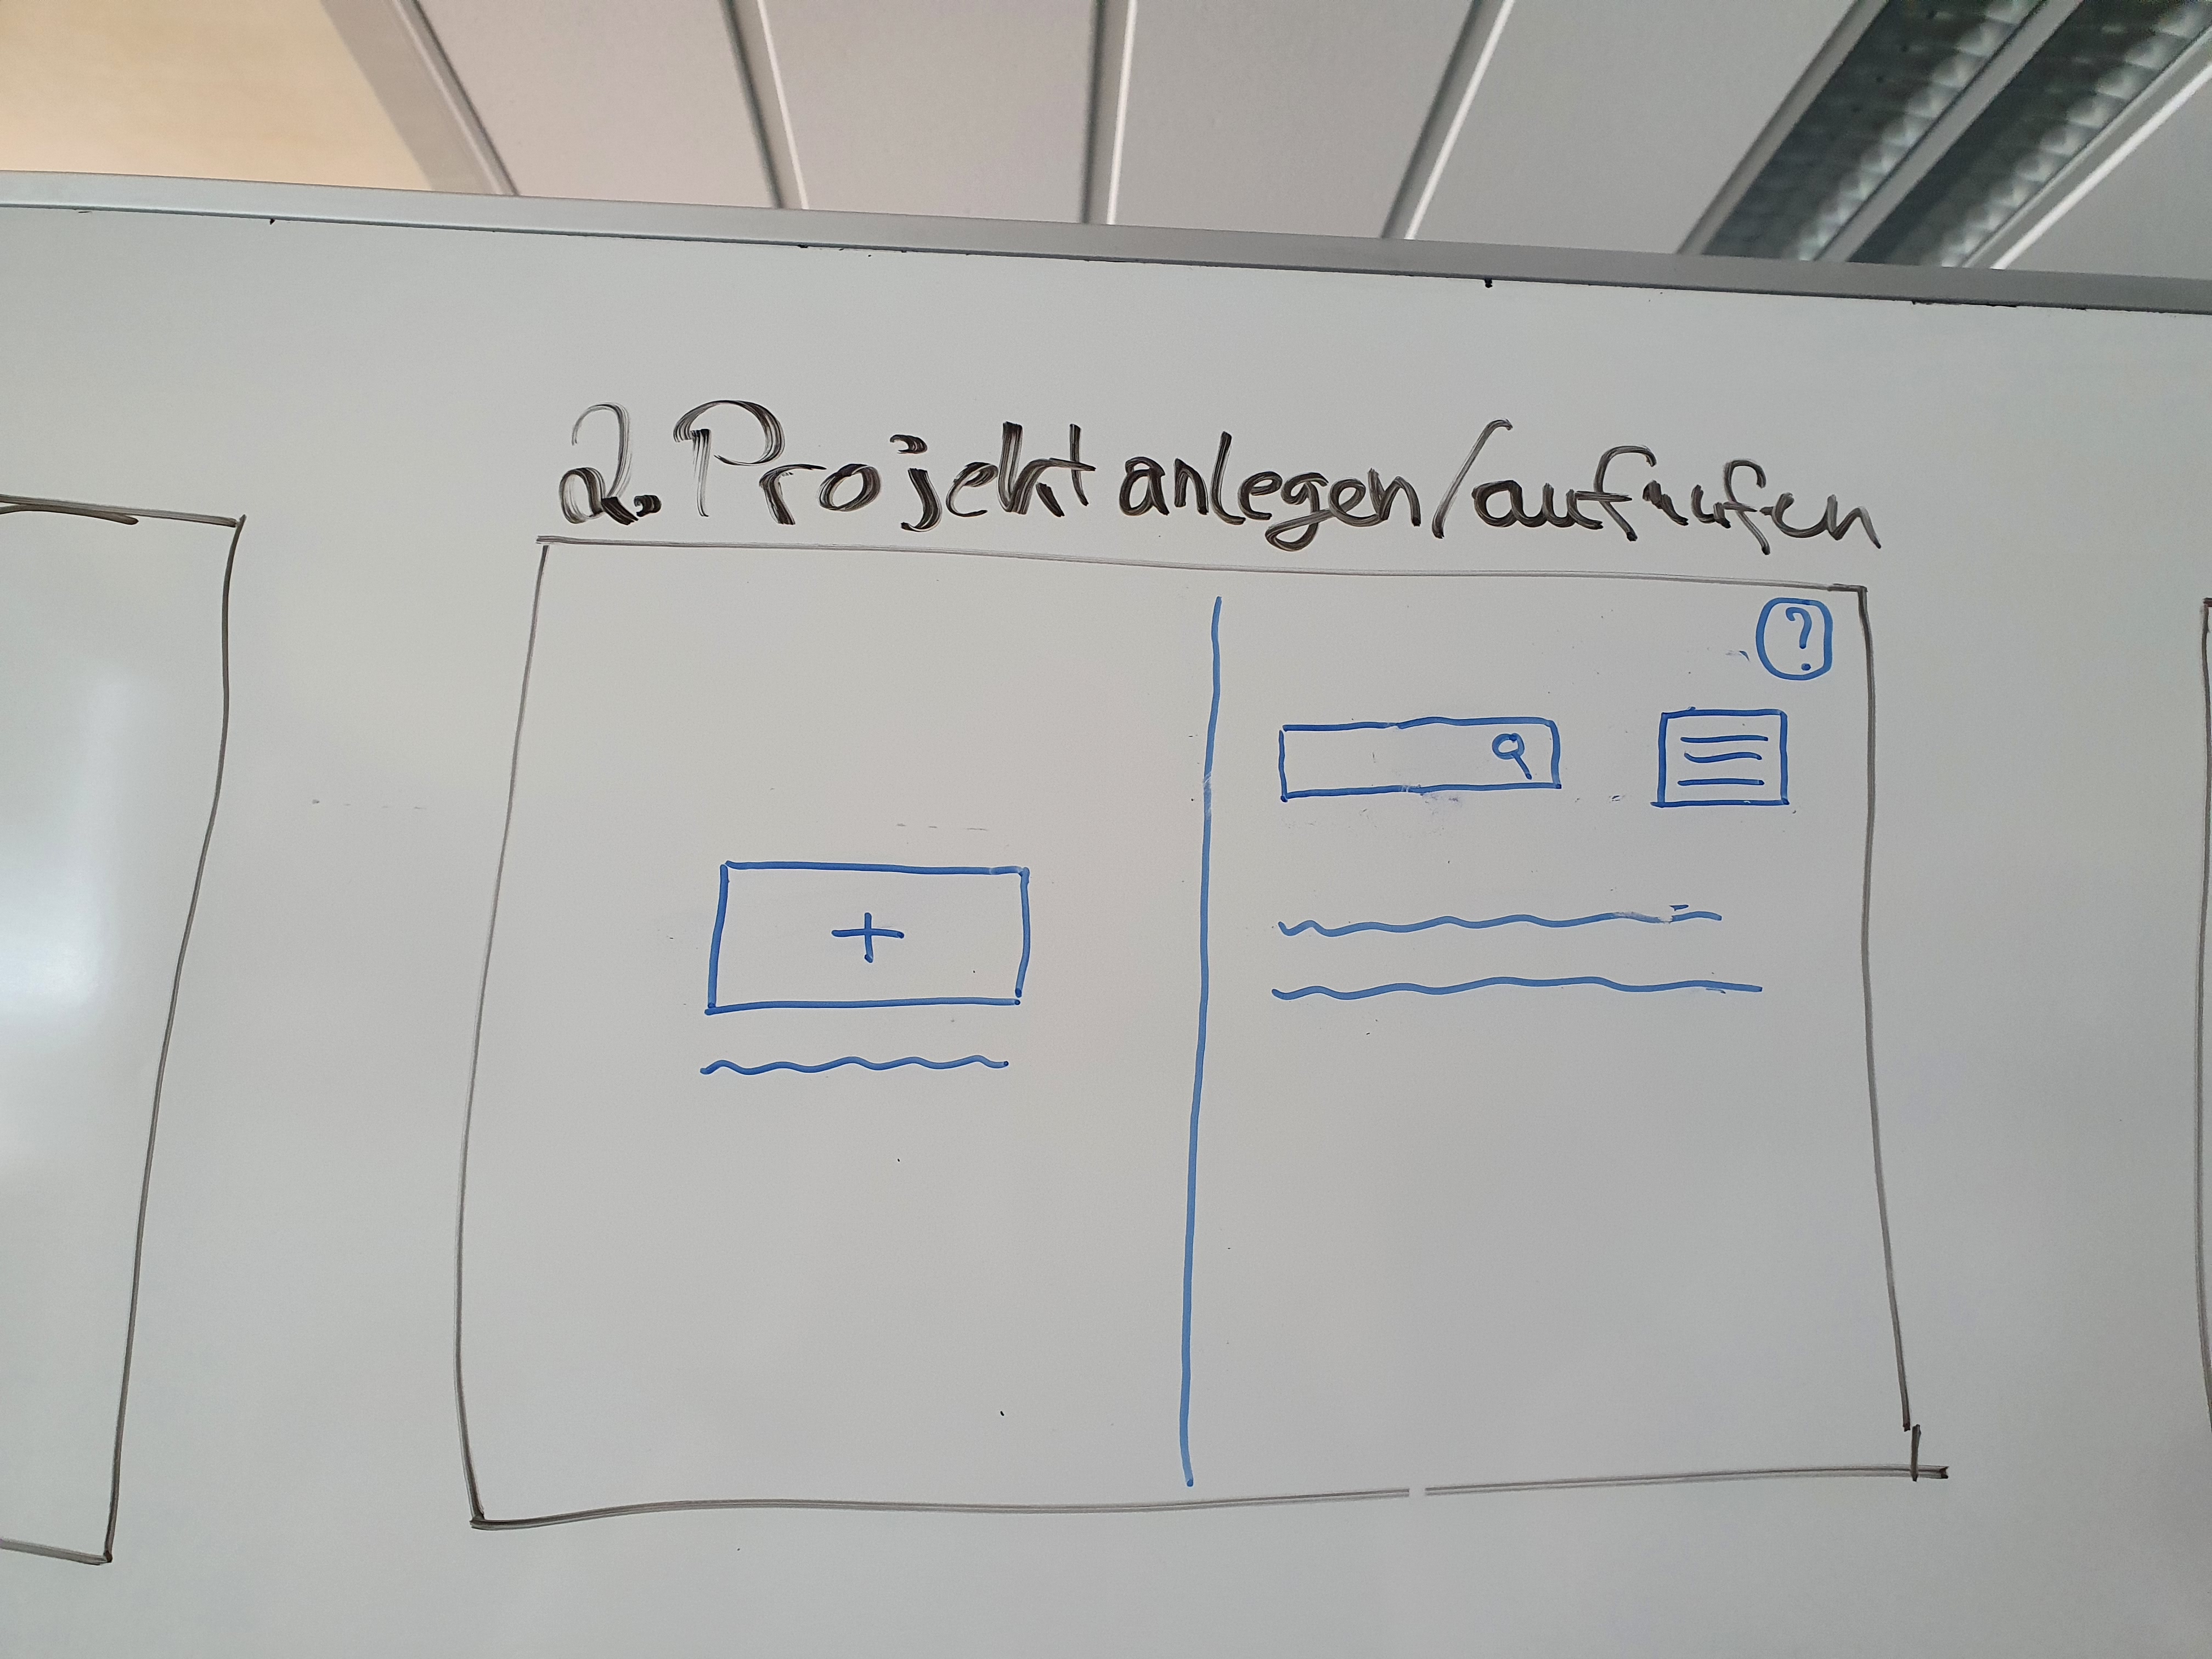 2. Projekt anlegen/aufrufen
?
+